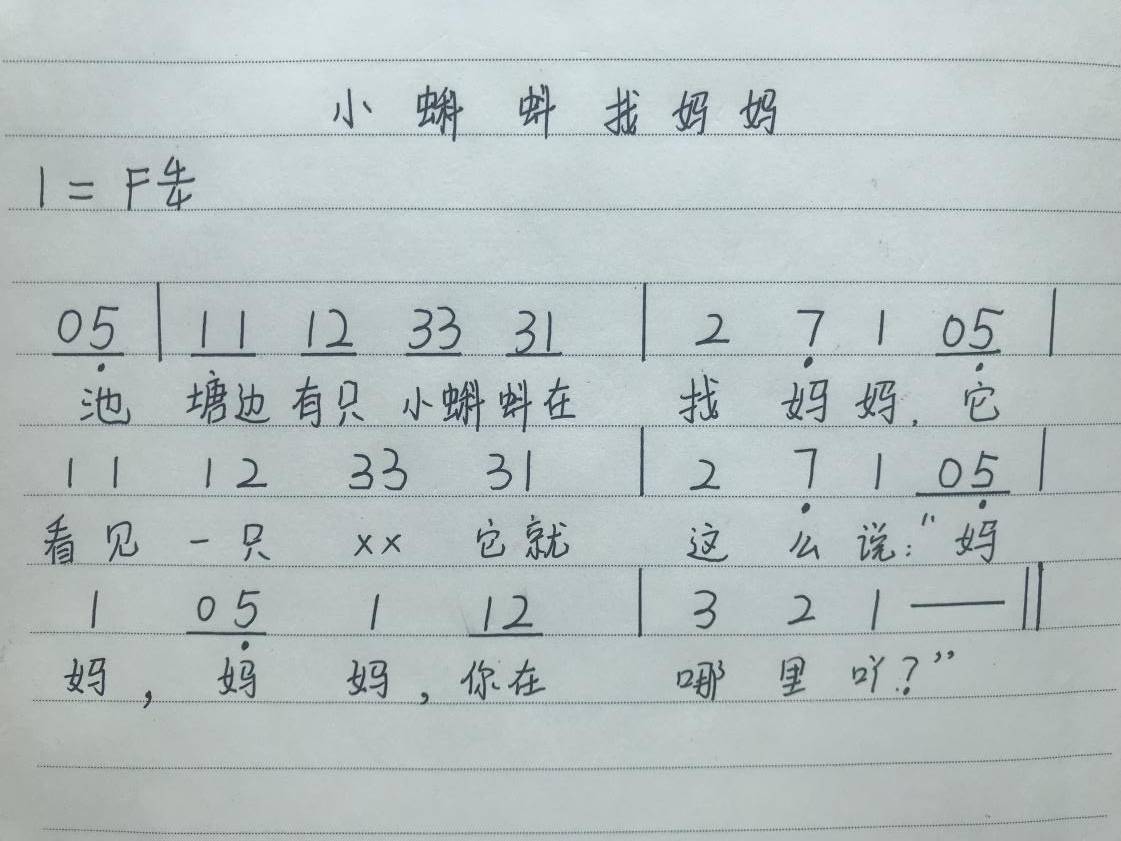 小蝌蚪找妈妈
1=F 4/4
05 | 11 12 33 31 | 2 7 1 05 |
池 塘边 有只 小蝌蚪在 找 妈 妈, 它
11 12 33 31 | 2 7 1 05 |
看见 一只 ×× 它就 这 么 说:"妈
1 05 1 12 | 3 2 1 — ‖
妈, 妈 妈, 你在 哪 里 吖?"